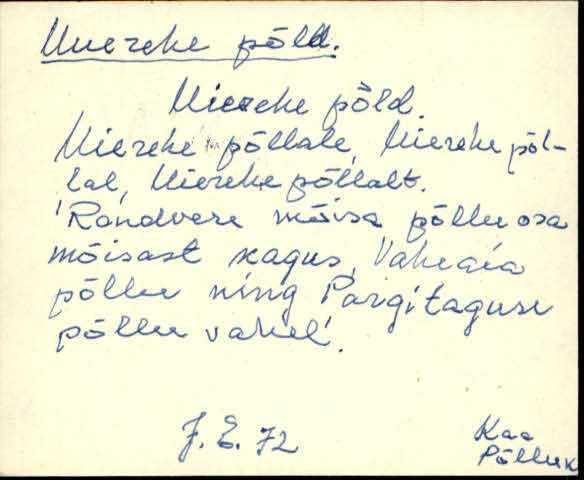 Uuereke põld.
Uiereke põld.
Uiereke põllale, Uiereke põl-
lal, Uiereke põllalt.
'Randvere mõisa põllu osa
mõisast kagus, Vaheaia
põllu ning Pargitaguse
põllu vahel'.
J. E. 72
Kaa
Põlluk